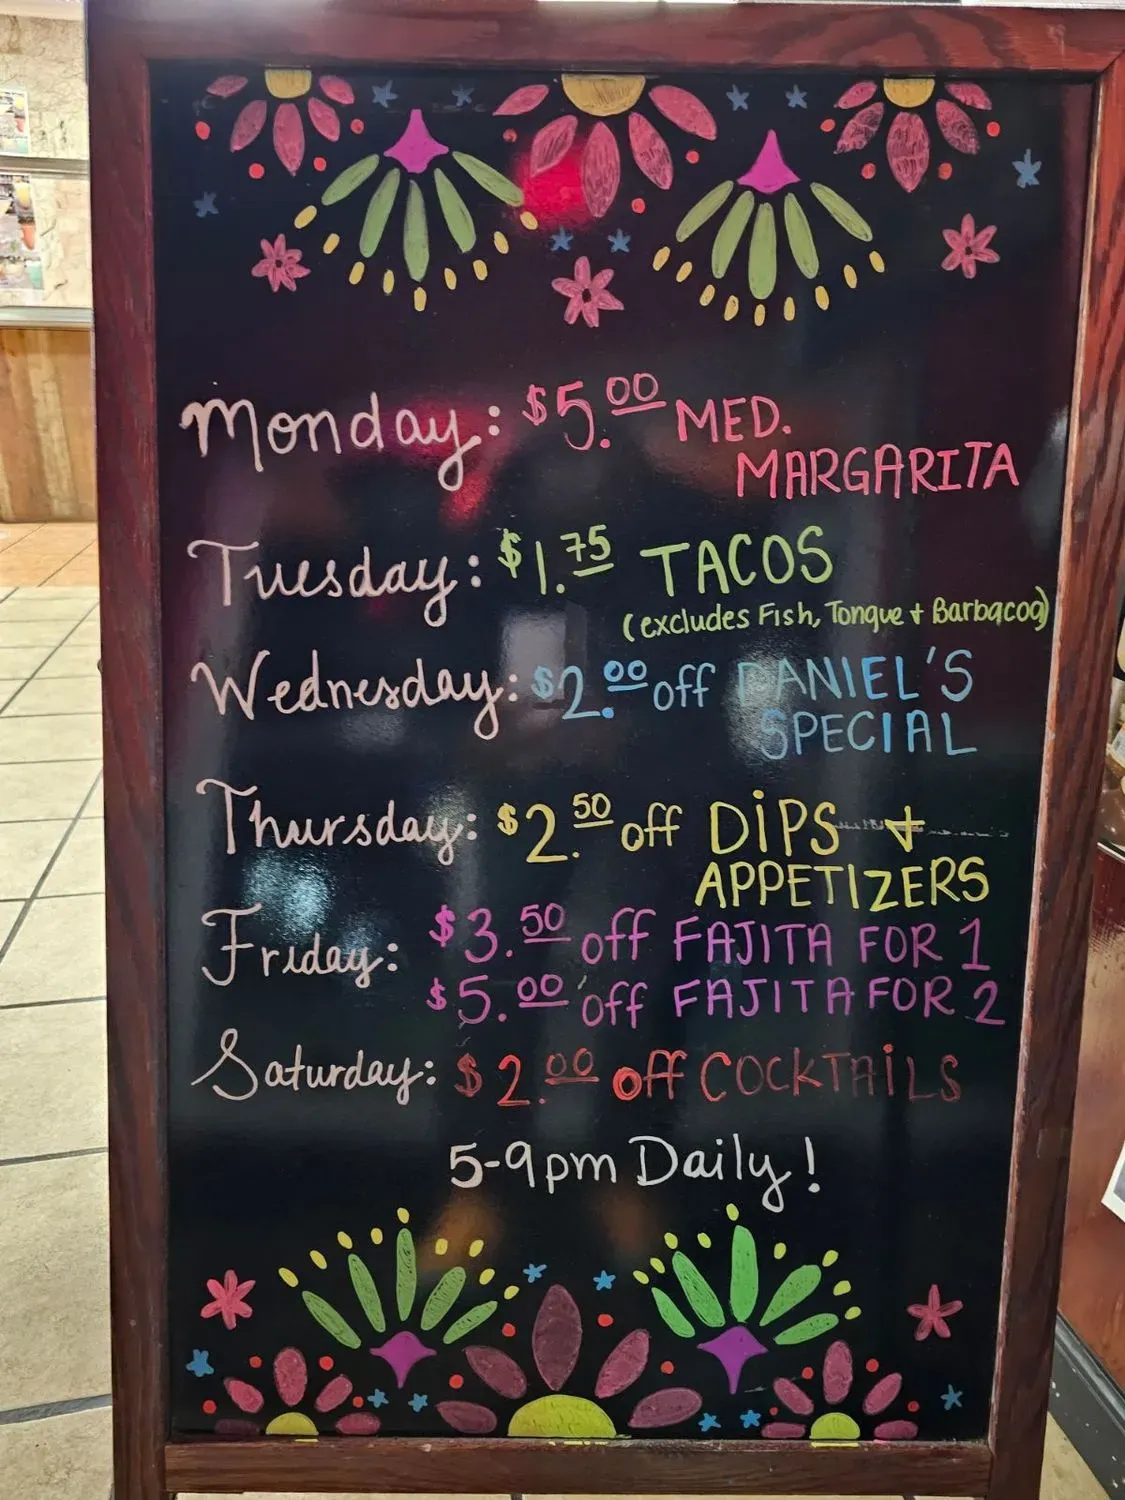 Monday: $5.00 MED.
MARGARITA
Tuesday: $1.75 TACOS
(excludes Fish, Tongue + Barbacoa)
Wednesday: $2.00 off DANIEL'S
SPECIAL
Thursday: $2.50 off DiPS +
APPETIZERS
Friday: $3.50 off FAJITA FOR 1
$5.00 off FAJITA FOR 2
Saturday: $2.00 off COCKTAiLS
5-9pm Daily!